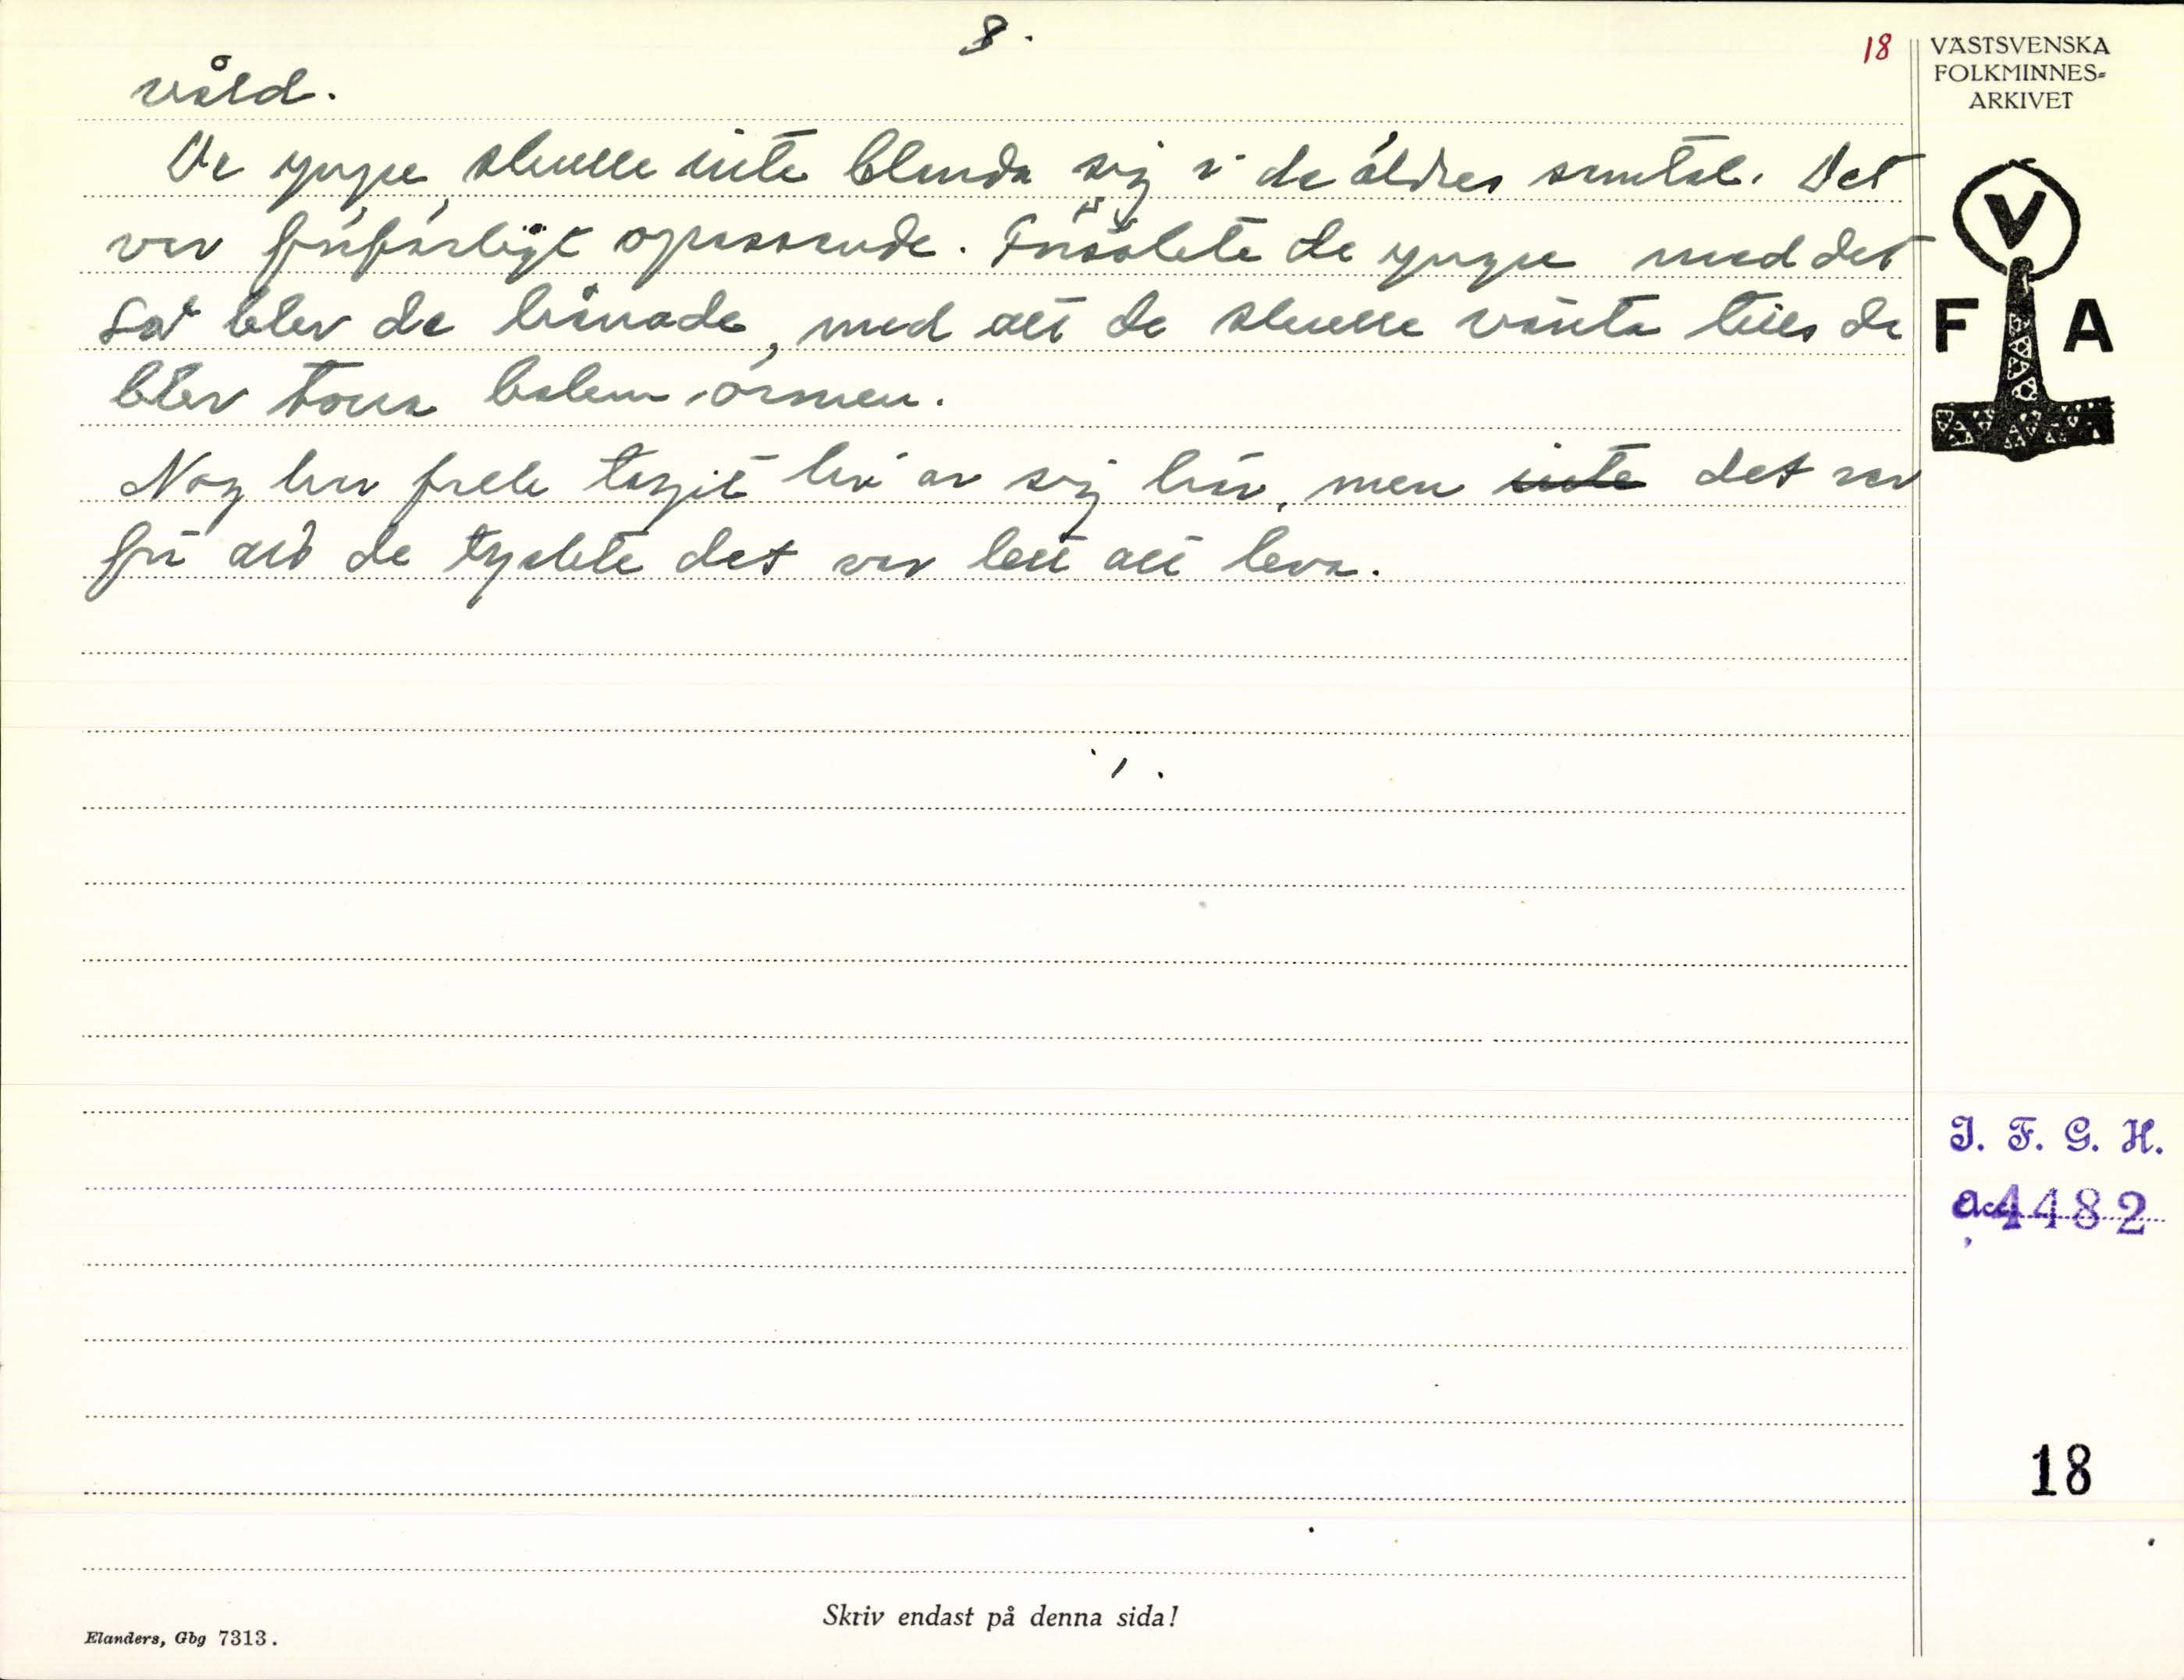 8.
18
våld.
De yngre skulle inte blanda sig i de äldres samtal. Det
var förfärligt opassande. Försökte de yngre med det
så blev de hånade, med att de skulle vänta tills de
blev torra bakom öronen.
Nog har folk tagit liv av sig här, men inte det var
för att de tyckte det var lett att leva.
VÄSTSVENSKA
FOLKMINNES-
ARKIVET
V
F A
I. F. G. H.
acc 4482
18
Skriv endast på denna sida!
Elanders, Gbg 7313.